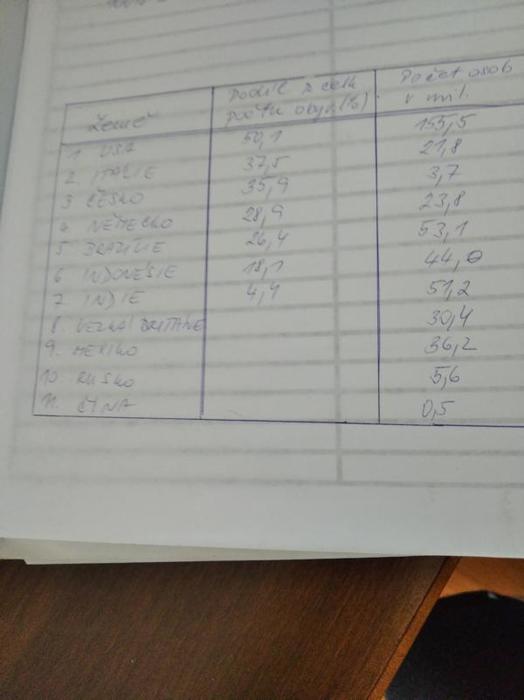 Země Podíl z celk. počtu obyv. (%) Počet osob v mil.
1 USA 50,1 155,5
2 ITÁLIE 37,5 21,8
3 ČESKO 35,9 3,7
4 NĚMECKO 28,9 23,8
5 BRAZÍLIE 26,4 53,1
6 INDONÉSIE 18,1 44,0
7 INDIE 4,4 51,2
8. VELKÁ BRITÁNIE 30,4
9. MEXIKO 36,2
10. RUSKO 5,6
11. ČÍNA 0,5